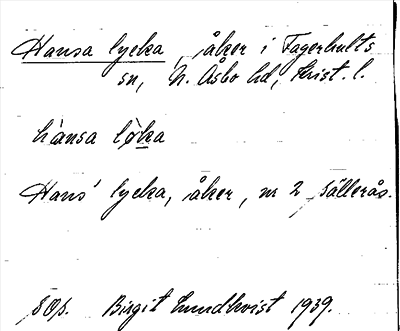 Hansa lycka, åker i Fagerhults
sn, N. Åsbo hd, Krist. l.
hànsa lø̀ka
Hans' lycka, åker, nr 2 Källerås.
Birgit Lundkvist 1939.